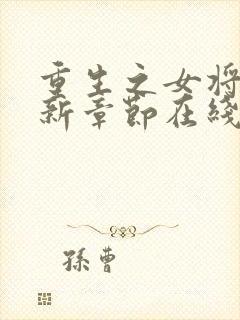 重生之女将
新章節在綫
孫曹